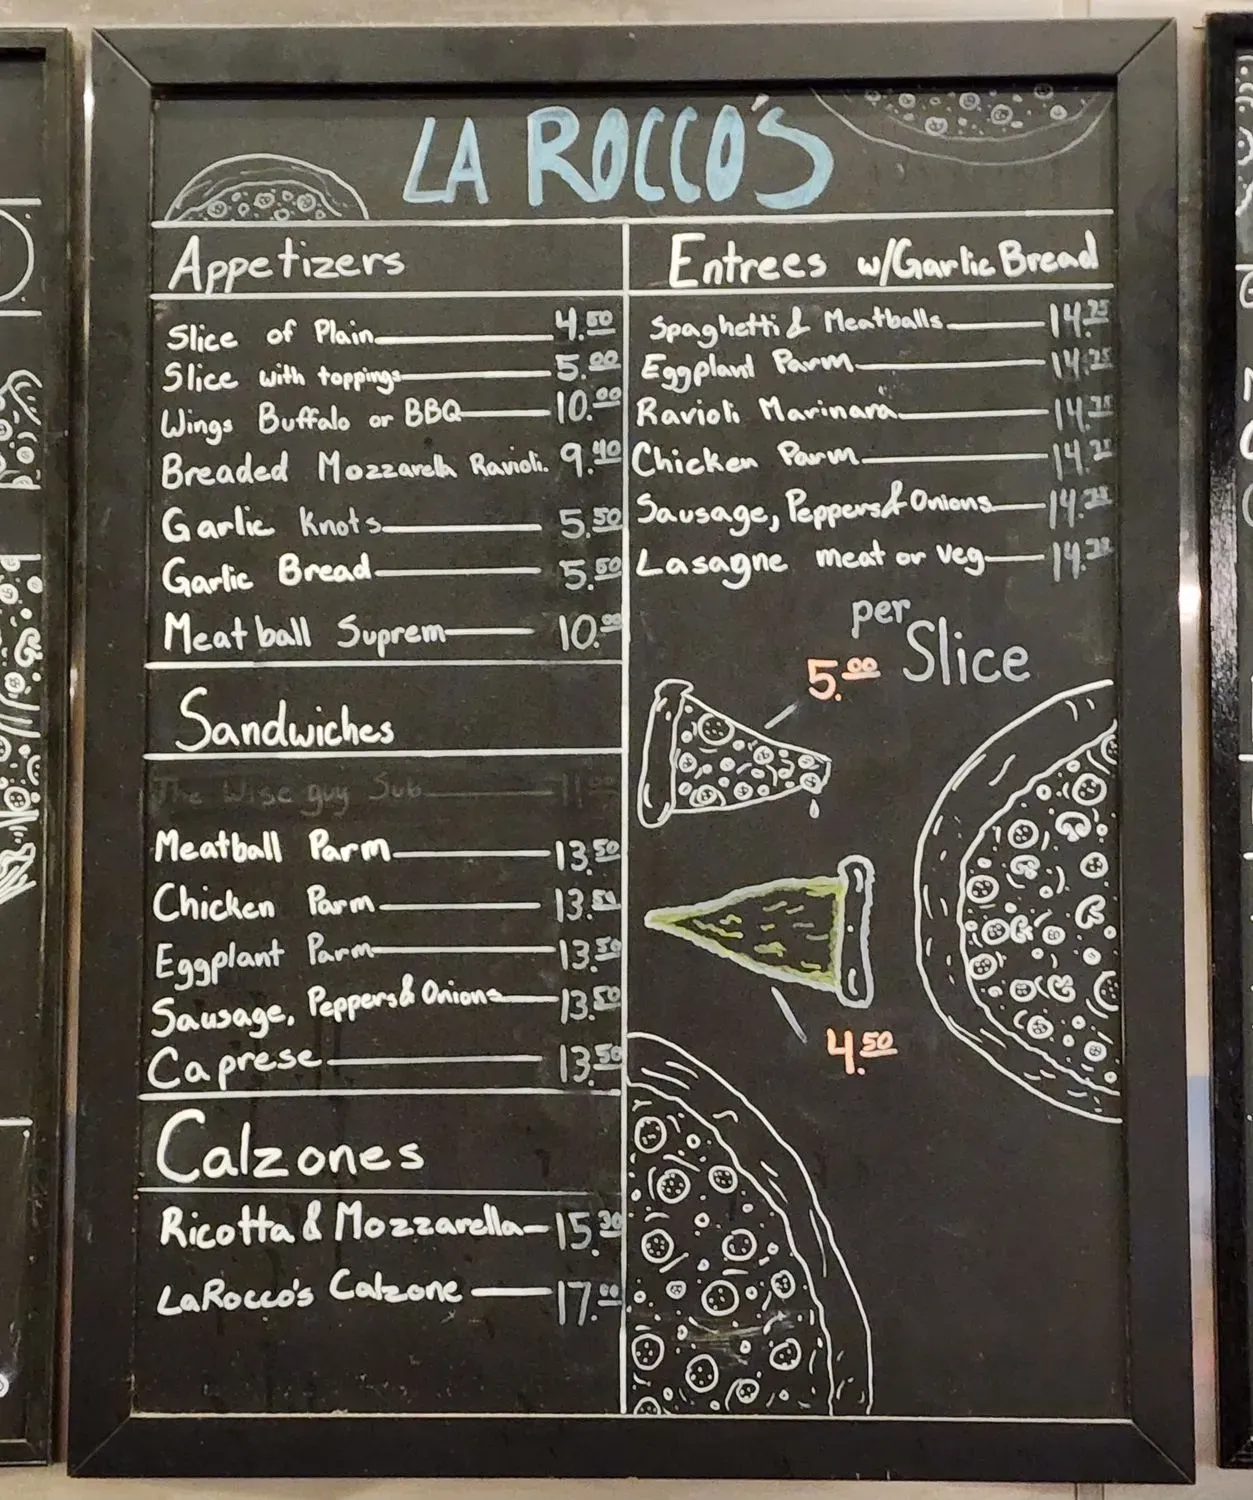 LA ROCCO'S
Appetizers
Slice of Plain 4.50
Slice with toppings 5.00
Wings Buffalo or BBQ 10.00
Breaded Mozzarella Ravioli. 9.40
Garlic Knots 5.50
Garlic Bread 5.50
Meatball Suprem 10.00
Sandwiches
The Wise guy Sub 11.00
Meatball Parm 13.50
Chicken Parm 13.50
Eggplant Parm 13.50
Sausage, Peppers & Onions 13.50
Caprese 13.50
Calzones
Ricotta & Mozzarella 15.30
LaRocco's Calzone 17.00
Entrees w/Garlic Bread
Spaghetti & Meatballs 14.25
Eggplant Parm 14.25
Ravioli Marinara 14.25
Chicken Parm 14.25
Sausage, Peppers & Onions 14.25
Lasagne meat or veg 14.25
per
5.00 Slice
4.50